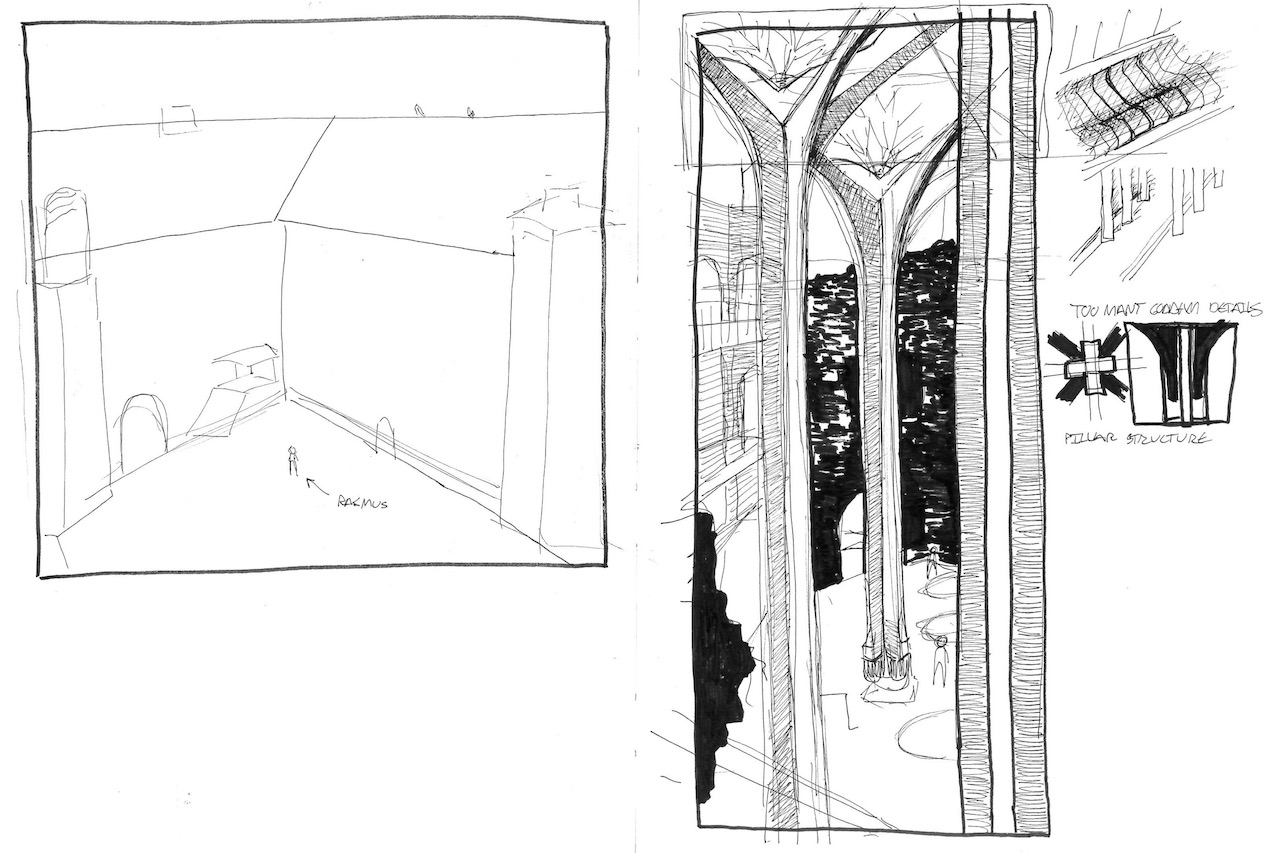 RASMUS
TOO MANY GODDAMN DETAILS
PILLAR STRUCTURE